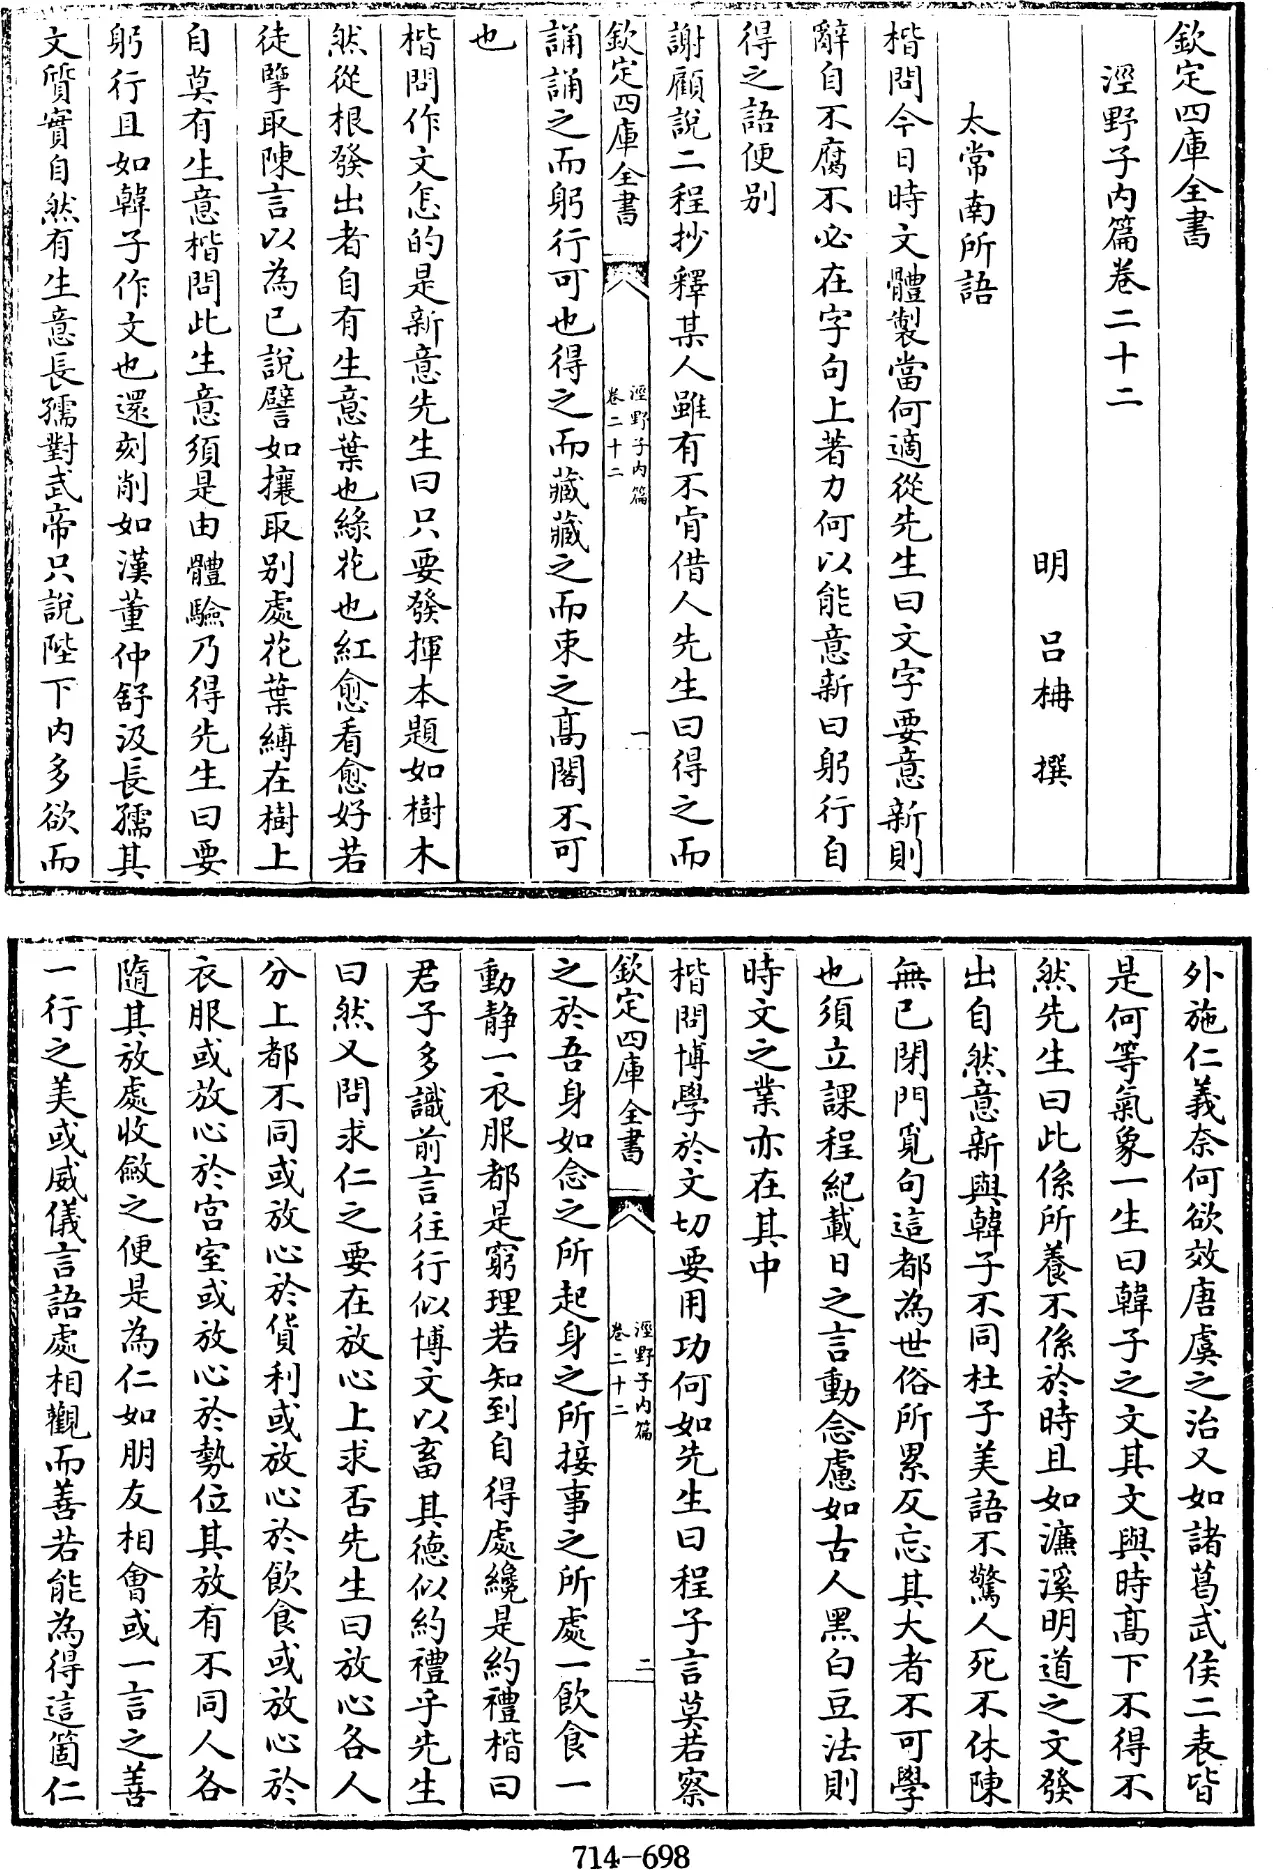 欽定四庫全書
涇野子內篇卷二十二
明 呂柟 撰
太常南所語
楷問今日時文體製當何適從先生曰文字要意新則
辭自不腐不必在字句上著力何以能意新曰躬行自
得之語便别
謝顧說二程抄釋某人雖有不肯借人先生曰得之而
欽定四庫全書
涇野子內篇
卷二十二
一
誦誦之而躬行可也得之而藏藏之而束之高閣不可
也
楷問作文怎的是新意先生曰只要發揮本題如樹木
然從根發出者自有生意葉也綠花也紅愈看愈好若
徒摮取陳言以為已說譬如攘取别處花葉縛在樹上
自莫有生意楷問此生意須是由體驗乃得先生曰要
躬行且如韓子作文也還刻削如漢董仲舒汲長孺其
文質實自然有生意長孺對武帝只說陛下內多欲而
外施仁義奈何欲效唐虞之治又如諸葛武侯二表皆
是何等氣象一生曰韓子之文其文與時高下不得不
然先生曰此係所養不係於時且如濂溪明道之文發
出自然意新與韓子不同杜子美語不驚人死不休陳
無已閉門覓句這都為世俗所累反忘其大者不可學
也須立課程紀載日之言動念慮如古人黑白豆法則
時文之業亦在其中
楷問博學於文切要用功何如先生曰程子言莫若察
欽定四庫全書
涇野子內篇
卷二十二
二
之於吾身如念之所起身之所接事之所處一飲食一
動靜一衣服都是窮理若知到自得處纔是約禮楷曰
君子多識前言往行似博文以畜其德似約禮乎先生
曰然又問求仁之要在放心上求否先生曰放心各人
分上都不同或放心於貨利或放心於飲食或放心於
衣服或放心於宮室或放心於勢位其放有不同人各
隨其放處收斂之便是為仁如朋友相會或一言之善
一行之美或威儀言語處相觀而善若能為得這箇仁
714-698